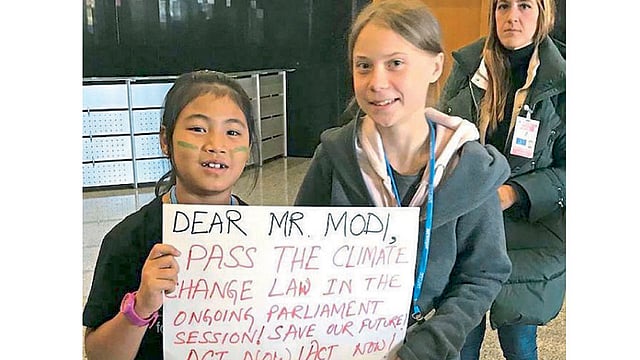 DEAR MR. MODI,
PASS THE CLIMATE
CHANGE LAW IN THE
ONGOING PARLIAMENT
SESSION! SAVE OUR FUTURE!
ACT NOW! ACT NOW!